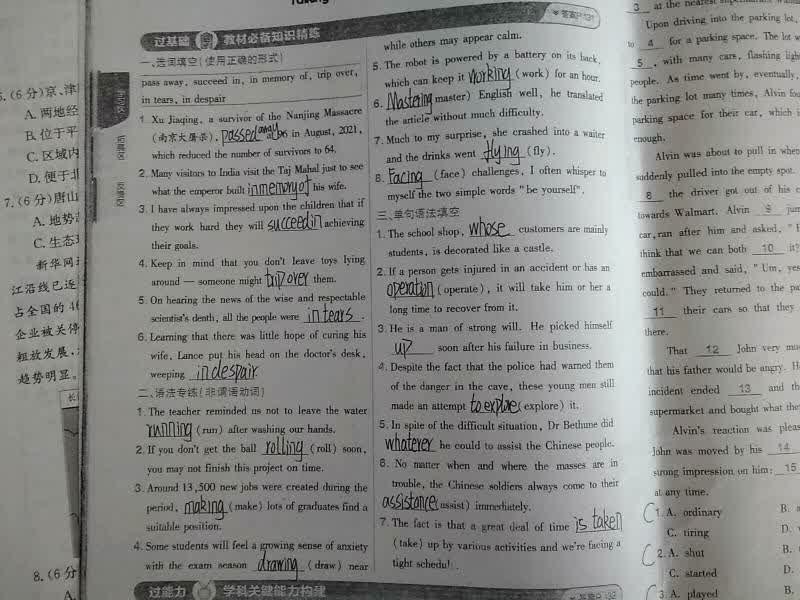 Taking
过基础 教材必备知识精练
答案P131
一、选词填空(使用正确的形式)
pass away, succeed in, in memory of, trip over,
in tears, in despair
1. Xu Jiaqing, a survivor of the Nanjing Massacre
(南京大屠杀), passed away at 96 in August, 2021,
which reduced the number of survivors to 64.
2. Many visitors to India visit the Taj Mahal just to see
what the emperor built in memory of his wife.
3. I have always impressed upon the children that if
they work hard they will succeed in achieving
their goals.
4. Keep in mind that you don't leave toys lying
around — someone might trip over them.
5. On hearing the news of the wise and respectable
scientist's death, all the people were in tears.
6. Learning that there was little hope of curing his
wife, Lance put his head on the doctor's desk,
weeping in despair
二、语法专练(非谓语动词)
1. The teacher reminded us not to leave the water
running (run) after washing our hands.
2. If you don't get the ball rolling (roll) soon,
you may not finish this project on time.
3. Around 13,500 new jobs were created during the
period, making (make) lots of graduates find a
suitable position.
4. Some students will feel a growing sense of anxiety
with the exam season drawing (draw) near
while others may appear calm.
5. The robot is powered by a battery on its back,
which can keep it working (work) for an hour.
6. Mastering master) English well, he translated
the article without much difficulty.
7. Much to my surprise, she crashed into a waiter
and the drinks went flying (fly).
8. Facing (face) challenges, I often whisper to
myself the two simple words "be yourself".
三、单句语法填空
1. The school shop, whose customers are mainly
students, is decorated like a castle.
2. If a person gets injured in an accident or has an
operation (operate), it will take him or her a
long time to recover from it.
3. He is a man of strong will. He picked himself
up soon after his failure in business.
4. Despite the fact that the police had warned them
of the danger in the cave, these young men still
made an attempt to explore (explore) it.
5. In spite of the difficult situation, Dr Bethune did
whatever he could to assist the Chinese people.
6. No matter when and where the masses are in
trouble, the Chinese soldiers always come to their
assistance assist) immediately.
7. The fact is that a great deal of time is taken
(take) up by various activities and we're facing a
tight schedul.
过能力 学科关键能力构建
5.(6分)京、津
A. 两地经
B. 位于平
C. 区域内
D. 便于北
7.(6分)唐山
A. 地势
C. 生态
新华网
江沿线已连
占全国的 4
企业被关停
粗放发展,
趋势明显。
8.(6分
A.
3 at the nearest supermarket
Upon driving into the parking lot,
to 4 for a parking space. The lot w
5, with many cars, flashing light
people. As time went by, eventually,
the parking lot many times, Alvin fou
parking space for their car, which i
enough.
Alvin was about to pull in when
suddenly pulled into the empty spot.
8 the driver got out of his c
towards Walmart. Alvin 9 jum
car, ran after him and asked, "E
think that we can both 10 it?
embarrassed and said, "Um, yes
could." They returned to the pa
11 their cars so that they
there.
That 12 John very mu
that his father would be angry. H
incident ended 13 and th
supermarket and bought what the
Alvin's reaction was pleas
John was moved by his 14
strong impression on him: 15
at any time.
C 1. A. ordinary B.
C. tiring D.
C 2. A. shut B.
C. started D.
C 3. A. played B.